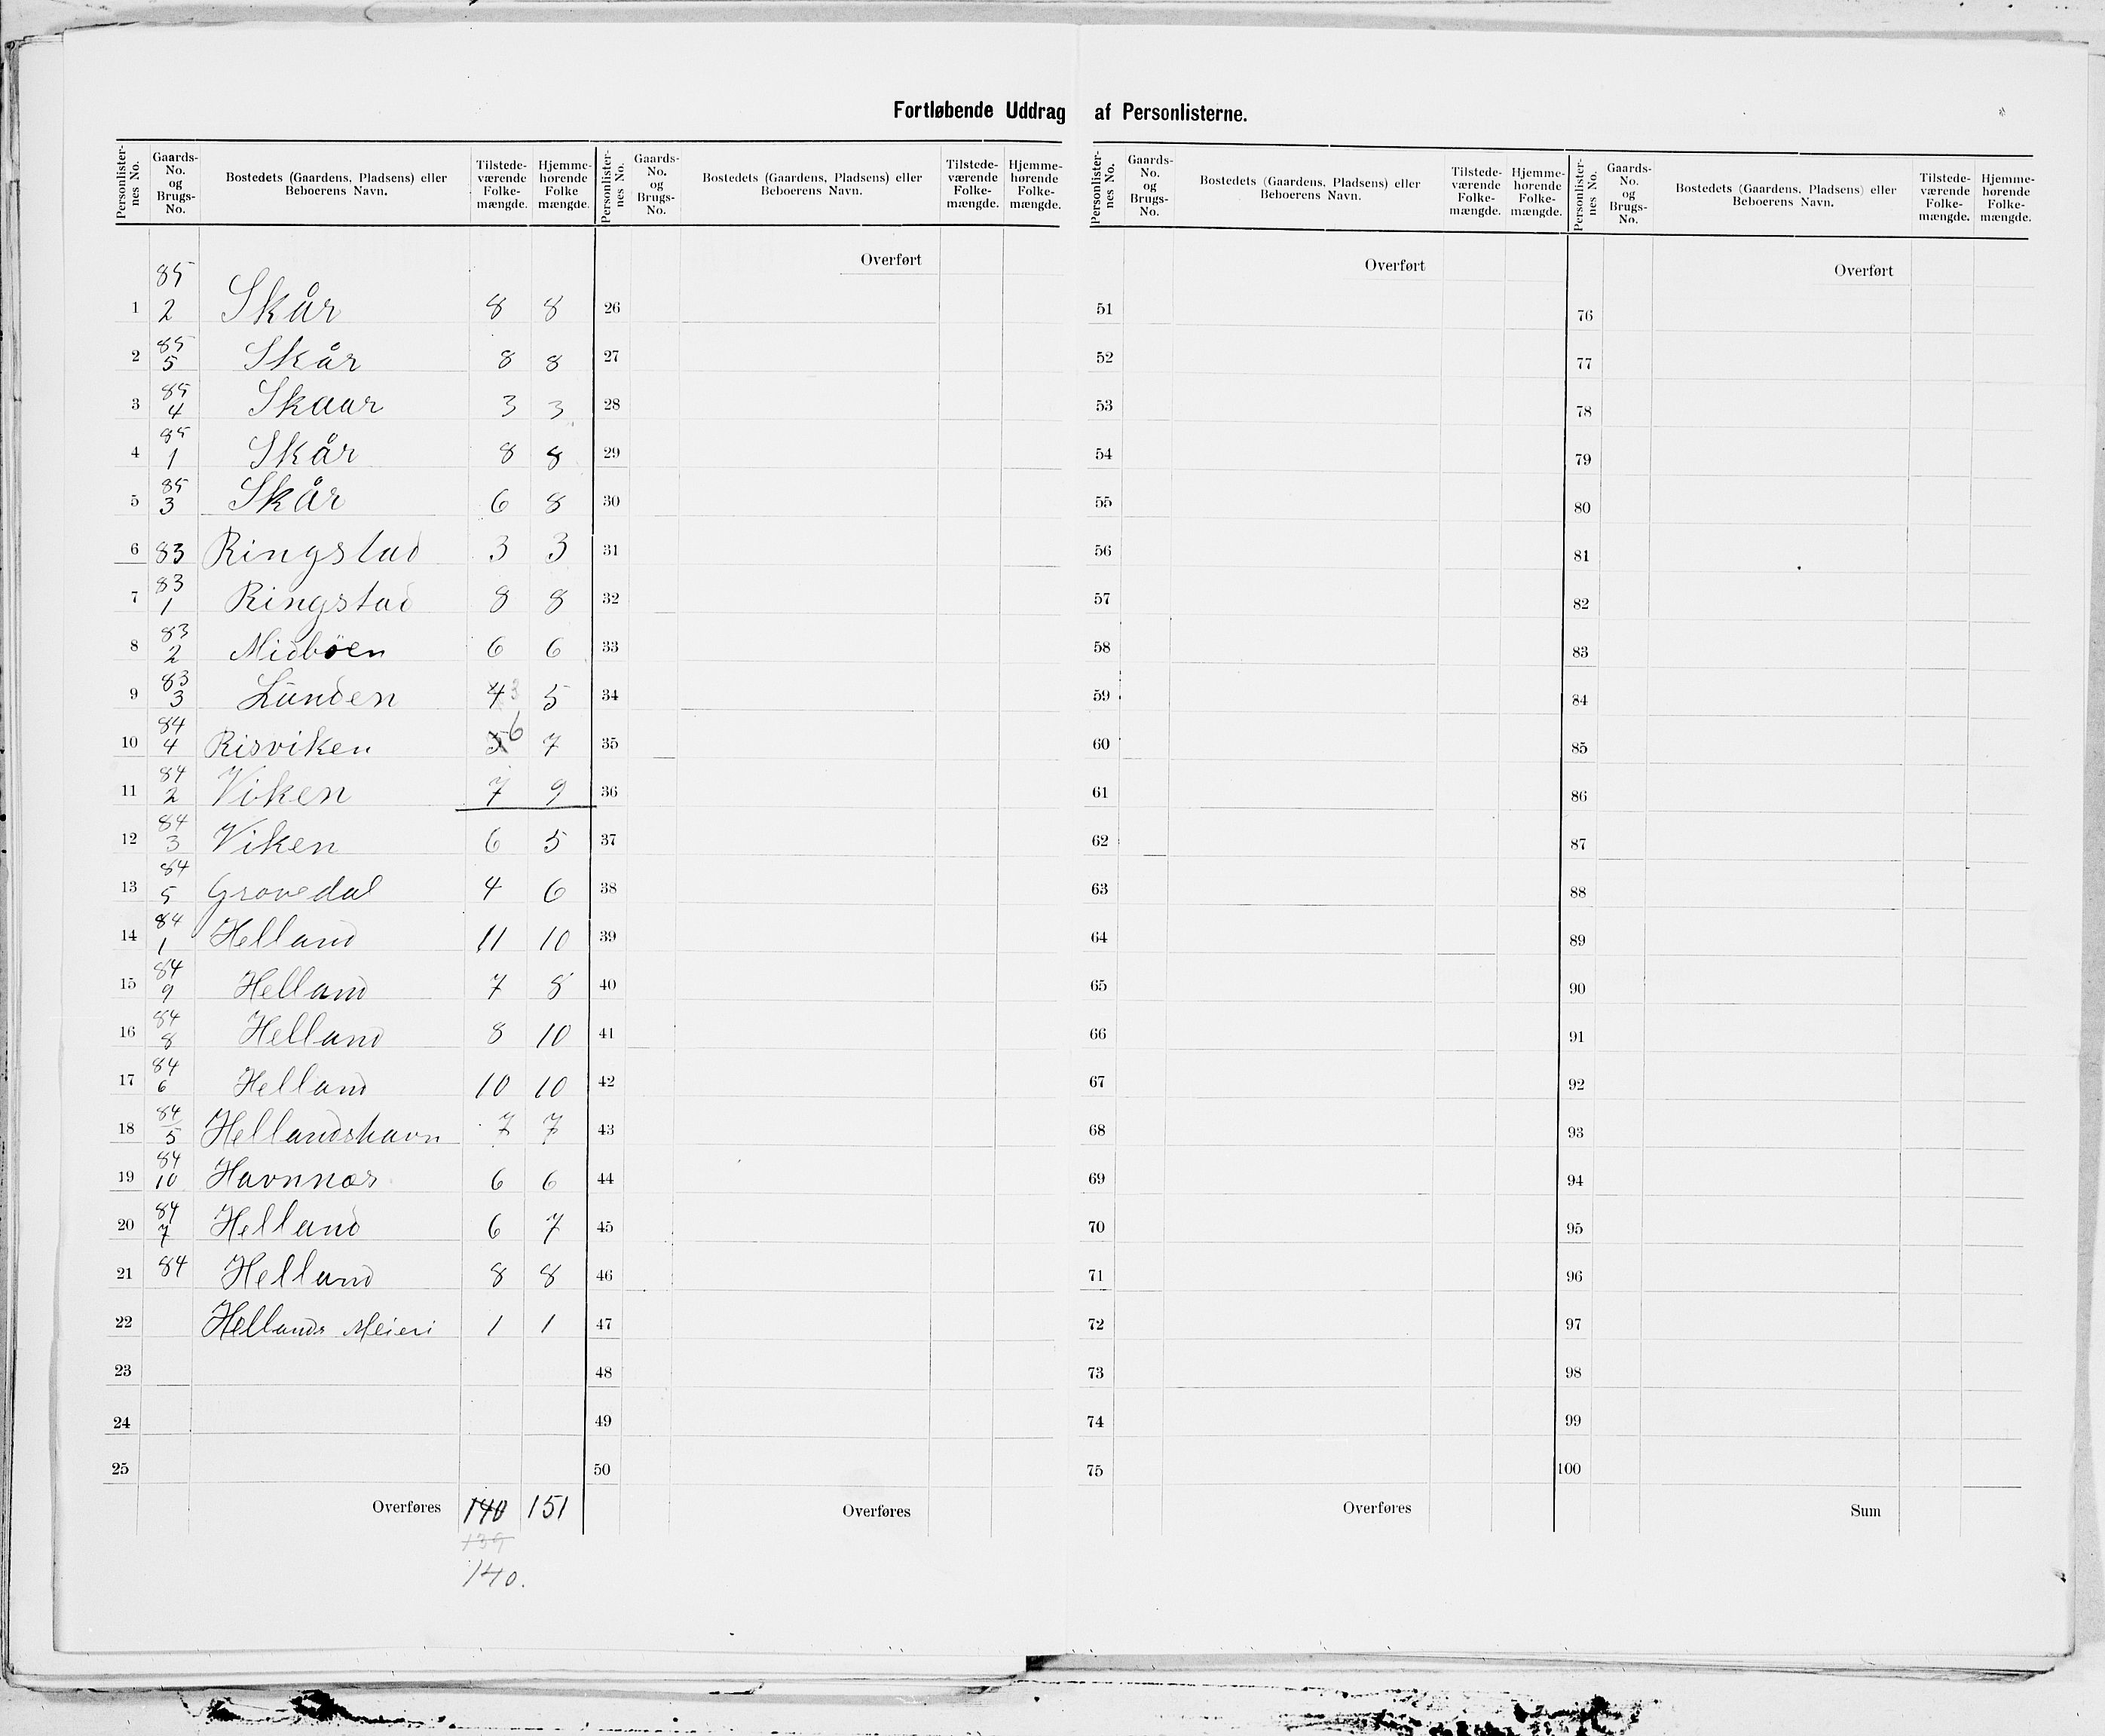 Fortløbende Uddrag af Personlisterne.
Personlister-nes No. | Gaards-No. og Brugs-No. | Bostedets (Gaardens, Pladsens) eller Beboerens Navn. | Tilstede-værende Folke-mængde. | Hjemme-hørende Folke mængde.
1 85 2 Skår 8 8
2 85 5 Skår 8 8
3 85 4 Skaar 3 3
4 85 1 Skår 8 8
5 85 3 Skår 6 8
6 83 Ringstad 3 3
7 83 1 Ringstad 8 8
8 83 2 Midbøen 6 6
9 83 3 Lunden 4 3 5
10 84 4 Risviken 5 6 7
11 84 2 Viken 7 9
12 84 3 Viken 6 5
13 84 5 Grovedal 4 6
14 84 1 Helland 11 10
15 84 9 Helland 7 8
16 84 8 Helland 8 10
17 84 6 Helland 10 10
18 84 5 Hellandshavn 7 7
19 84 10 Havnnæs 6 6
20 84 7 Helland 6 7
21 84 Helland 8 8
22 Hellands Meieri 1 1
23
24
25
Overføres 140 151
139
140.
Personlister-nes No. | Gaards-No. og Brugs-No. | Bostedets (Gaardens, Pladsens) eller Beboerens Navn. | Tilstede-værende Folke-mængde. | Hjemme-hørende Folke-mængde.
Overført
26
27
28
29
30
31
32
33
34
35
36
37
38
39
40
41
42
43
44
45
46
47
48
49
50
Overføres
Personlister-nes No. | Gaards-No. og Brugs-No. | Bostedets (Gaardens, Pladsens) eller Beboerens Navn. | Tilstede-værende Folke-mængde. | Hjemme-hørende Folke-mængde.
Overført
51
52
53
54
55
56
57
58
59
60
61
62
63
64
65
66
67
68
69
70
71
72
73
74
75
Overføres
Personlister-nes No. | Gaards-No. og Brugs-No. | Bostedets (Gaardens, Pladsens) eller Beboerens Navn. | Tilstede-værende Folke-mængde. | Hjemme-hørende Folke-mængde.
Overført
76
77
78
79
80
81
82
83
84
85
86
87
88
89
90
91
92
93
94
95
96
97
98
99
100
Sum